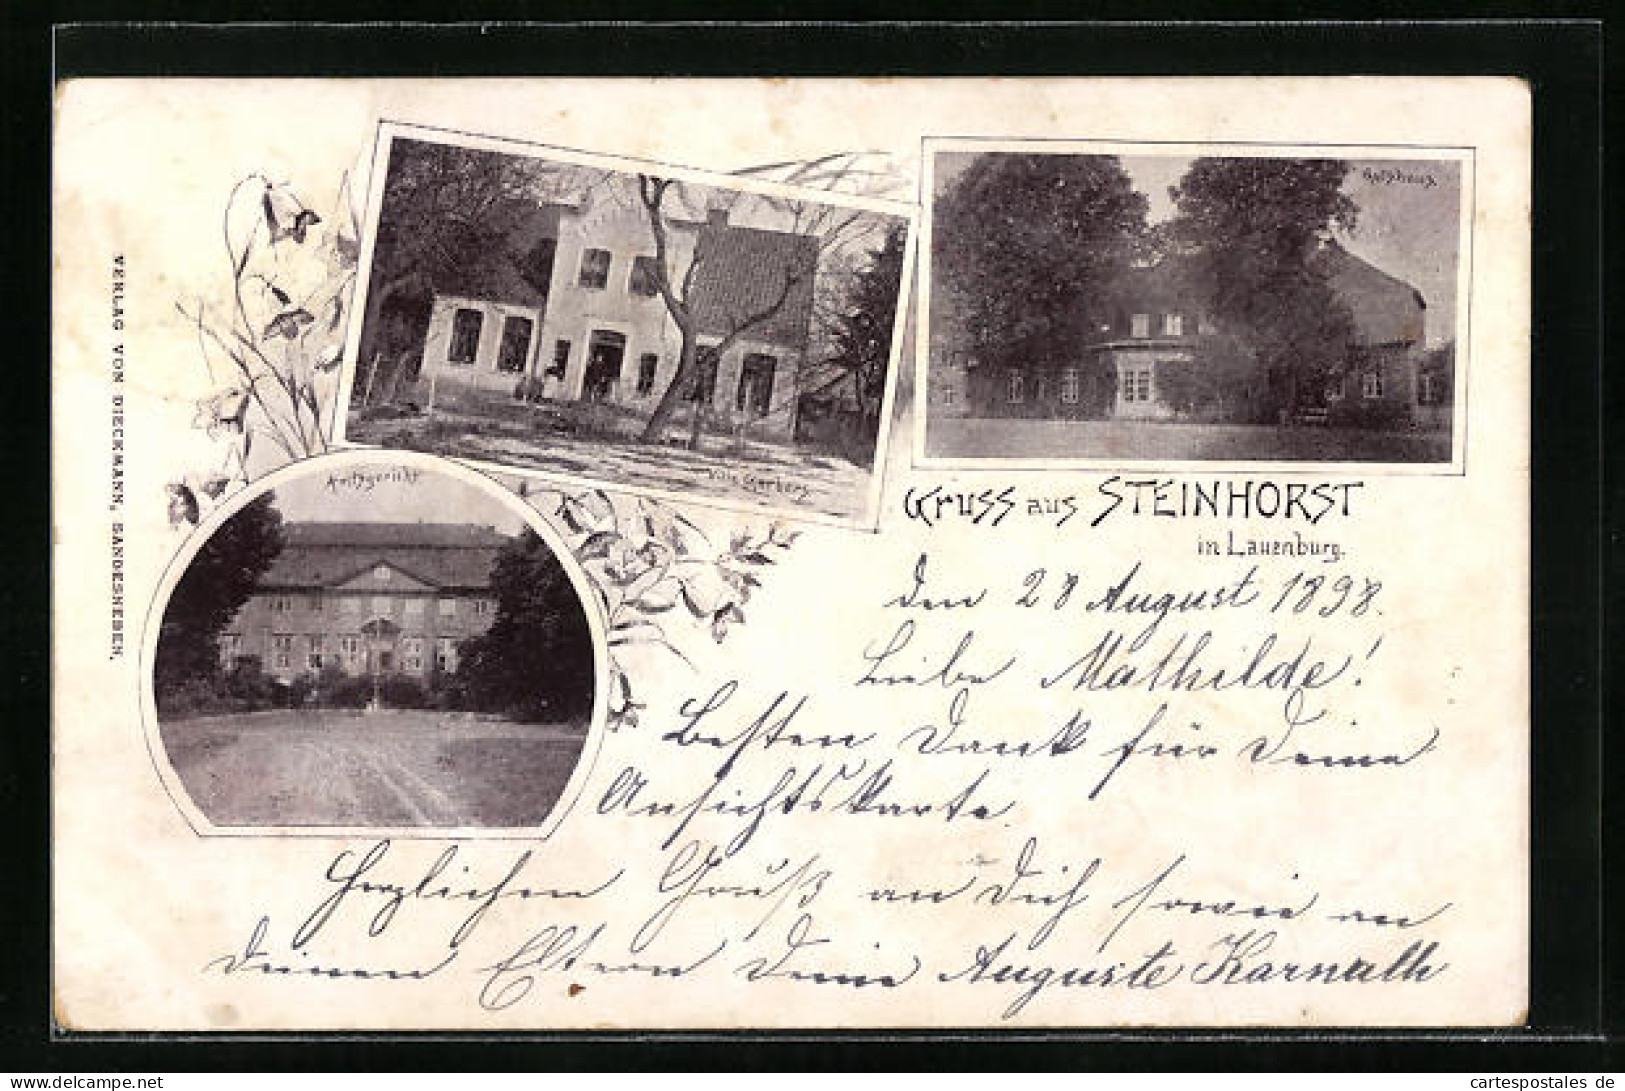 VERLAG VON DIECKMANN, SANDESNEBEN.
Amtsgericht
Gruss aus STEINHORST
in Lauenburg.
den 28 August 1898.
Liebe Mathilde!
Besten Dank für Deine
Ansichtskarte.
Herzlichen Gruß an Dich sowie an
deinen Eltern Deine Auguste Karnath
cartespostales de